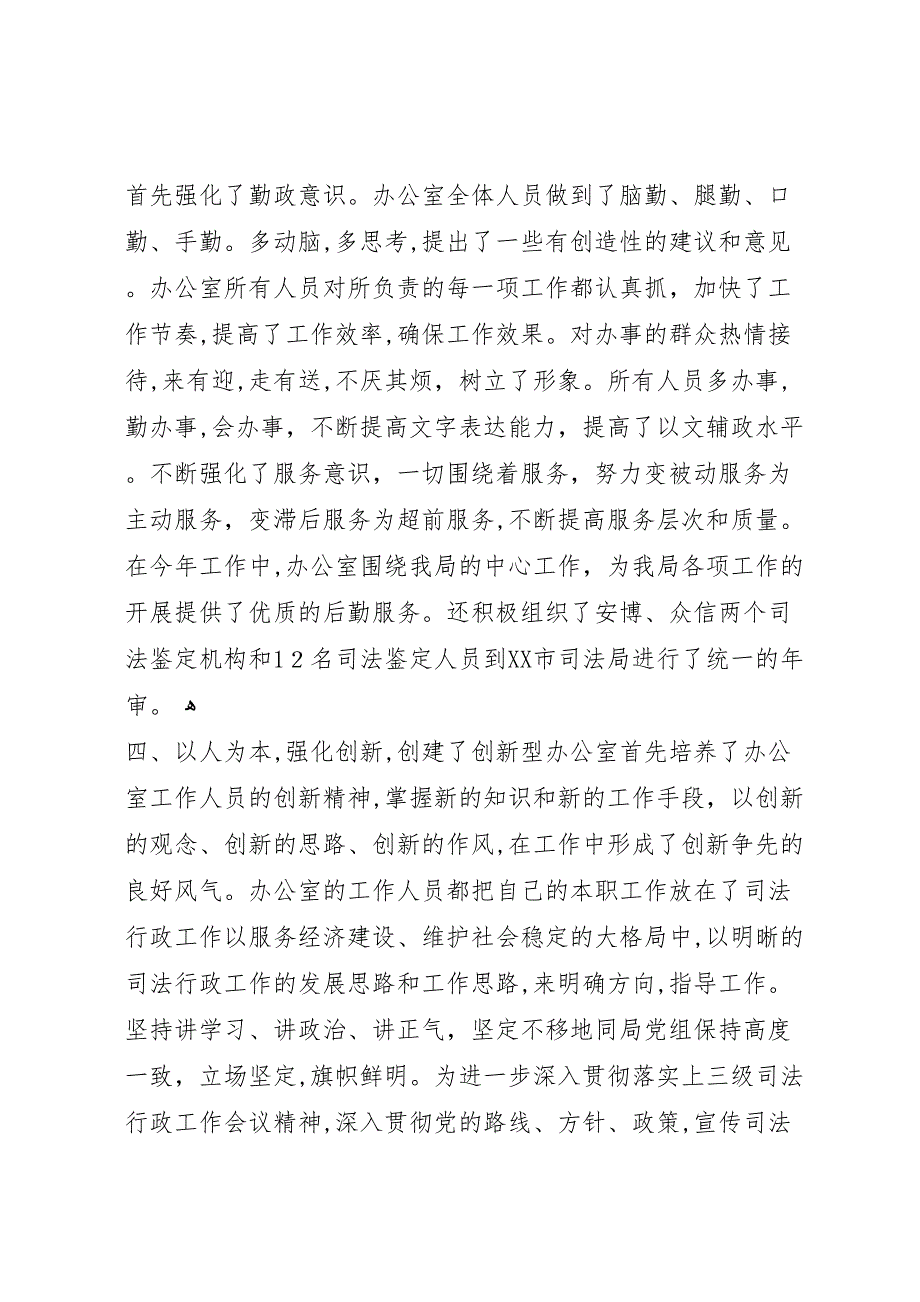 首先强化了勤政意识。办公室全体人员做到了脑勤、腿勤、口
勤、手勤。多动脑,多思考,提出了一些有创造性的建议和意见
。办公室所有人员对所负责的每一项工作都认真抓，加快了工
作节奏,提高了工作效率,确保工作效果。对办事的群众热情接
待,来有迎,走有送,不厌其烦，树立了形象。所有人员多办事,
勤办事,会办事，不断提高文字表达能力，提高了以文辅政水平
。不断强化了服务意识，一切围绕着服务，努力变被动服务为
主动服务，变滞后服务为超前服务,不断提高服务层次和质量。
在今年工作中,办公室围绕我局的中心工作，为我局各项工作的
开展提供了优质的后勤服务。还积极组织了安博、众信两个司
法鉴定机构和1２名司法鉴定人员到XX市司法局进行了统一的年
审。 ﻫ
四、以人为本,强化创新,创建了创新型办公室首先培养了办公
室工作人员的创新精神,掌握新的知识和新的工作手段，以创新
的观念、创新的思路、创新的作风,在工作中形成了创新争先的
良好风气。办公室的工作人员都把自己的本职工作放在了司法
行政工作以服务经济建设、维护社会稳定的大格局中,以明晰的
司法行政工作的发展思路和工作思路,来明确方向,指导工作。
坚持讲学习、讲政治、讲正气，坚定不移地同局党组保持高度
一致，立场坚定,旗帜鲜明。为进一步深入贯彻落实上三级司法
行政工作会议精神,深入贯彻党的路线、方针、政策,宣传司法